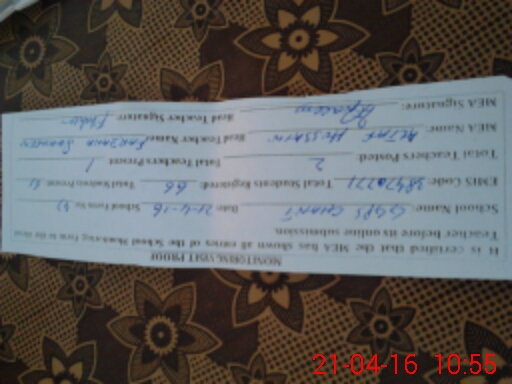 MONITORING VISIT PROOF
It is certified that the MEA has shown all entries of the School Monitoring Form to the Head
Teacher before its online submission.
School Name: GGPS Date: 21-4-16 School Form No:
EMIS Code: Total Students Registered: 66 Total Students Present:
Total Teachers Posted: 2 Total Teachers Present: 1
MEA Name: ALTAF HUSSAIN Head Teacher Name: FARZANA
MEA Signature: Head Teacher Signature:
21-04-16 10:55